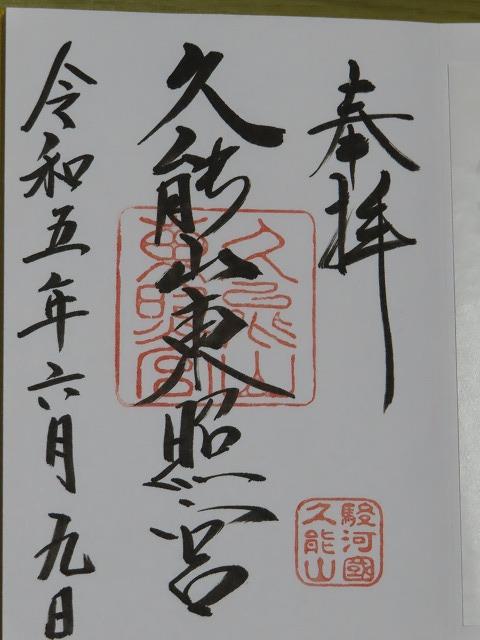 奉拝
久能山東照宮
久能山
東照宮
駿河國
久能山
令和五年六月九日